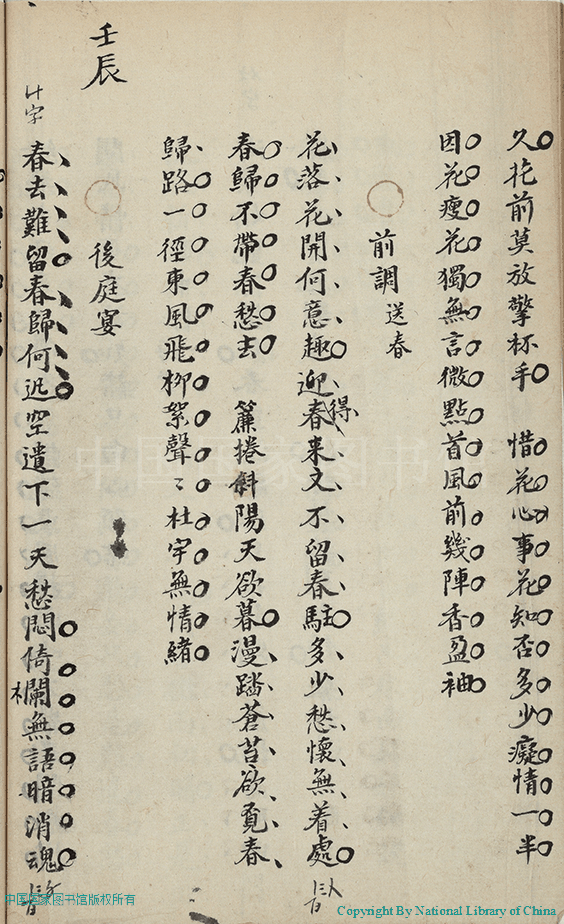 久拖前莫放擎杯手　惜花心事花知否多少癡情一半
因花瘦花獨無言微點首風前幾陣香盈袖
前調 送春
花落花開何意趣迎春得来又不留春駐多少愁懷無着處
春歸不帶春愁去　簾捲斜陽天欲暮漫踏蒼苔欲覓春
歸路一徑東風飛柳絮聲〻杜宇無情緒
壬辰
後庭宴
春去難留春歸何迅空遣下一天愁悶倚欄無語暗消魂
中国国家图书馆
中国国家图书馆版权所有
Copyright By National Library of China